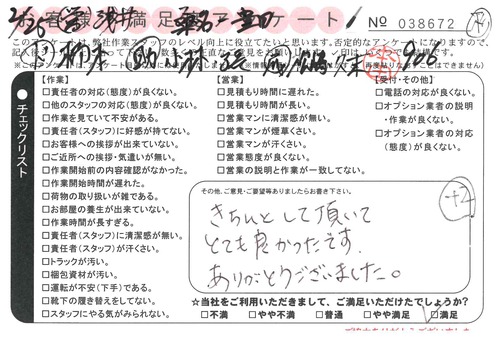 お客様満足 ート
No 038672
この
弊社作業スタッフのレベル向上に役立てたいと思います。否定的なアンケートになりますので、
【作業】
□責任者の対応(態度)が良くない。
□他のスタッフの対応(態度)が良くない。
□作業を見ていて不安がある。
□責任者(スタッフ)に好感が持てない。
□お客様への挨拶が出来ていない。
□ご近所への挨拶・気遣いが無い。
□作業開始前の内容確認がなかった。
□作業開始時間が遅れた。
□荷物の取り扱いが雑である。
□お部屋の養生が出来ていない。
□作業時間が長すぎる。
□責任者(スタッフ)に清潔感が無い。
□責任者(スタッフ)が汗くさい。
□トラックが汚い。
□梱包資材が汚い。
□運転が不安(下手)である。
□靴下の履き替えをしてない。
□スタッフにやる気がみられない。
【営業】
□見積もり時間に遅れた。
□見積もり時間が長い。
□営業マンに清潔感が無い。
□営業マンが煙草くさい。
□営業マンが汗くさい。
□営業態度が良くない。
□営業の説明と作業が一致してない。
【受付・その他】
□電話の対応が良くない。
□オプション業者の説明
・作業が良くない。
□オプション業者の対応
(態度)が良くない。
チェックリスト
その他、ご意見・ご要望等ありましたらお書き下さい。
+2
きちんとして頂いて
とても良かったです。
ありがとうございました。
☆当社をご利用いただきまして、ご満足いただけたでしょうか?
□不満 □やや不満 □普通 □やや満足 ☑満足